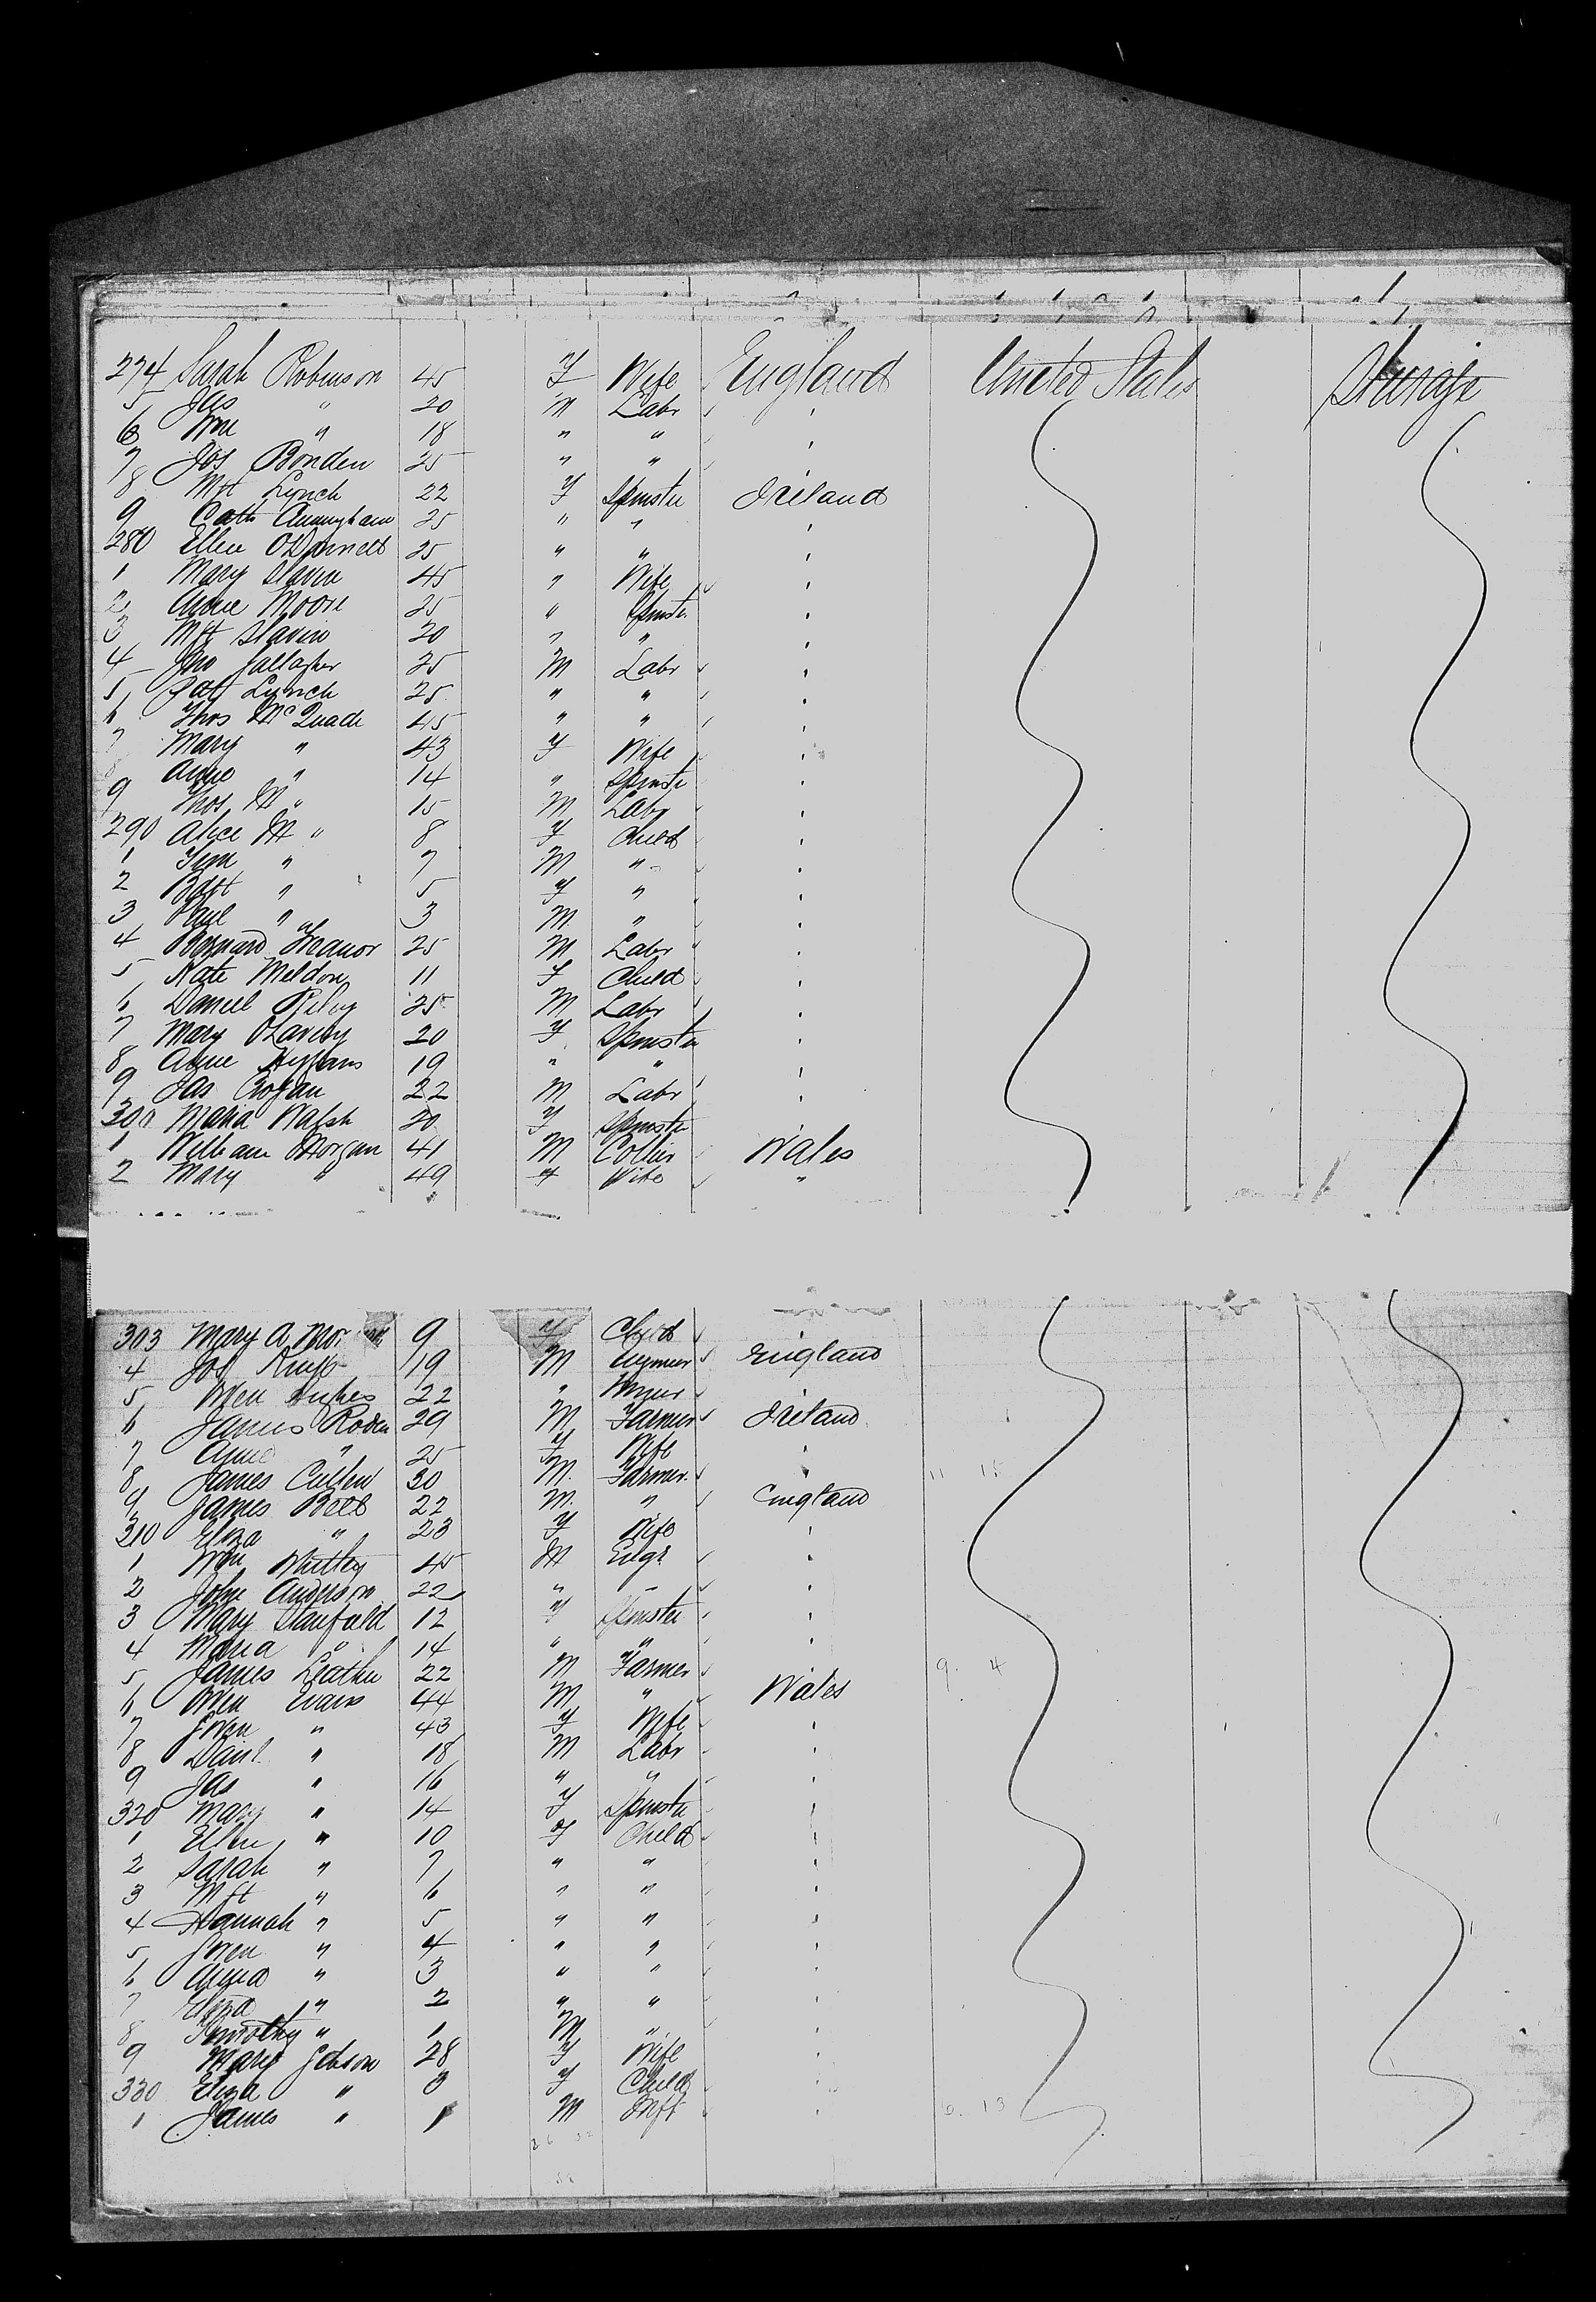 274 Sarah Robinson 45 F Wife England United States Steerage
5 Jas " 20 M Labr '
6 Wm " 18 " " '
7 Jos Bonden 25 " " '
8 Mgt Lynch 22 F Spinster Ireland
9 Cath Cunningham 25 " " '
280 Ellen O'Donnell 25 " " '
1 Mary Slavin 45 " Wife '
2 Anne Moore 25 " Spinstr '
3 Mgt Slavin 20 " " '
4 Jno Gallagher 25 M Labr '
5 Pat Lynch 25 " " '
6 Thos McQuade 45 " " '
7 Mary " 43 F Wife '
8 Anne " 14 " Spinstr '
9 Thos M " 15 M Labr '
290 Alice M " 8 F Child '
1 " 7 M " '
2 " 5 F " '
3 Paul " 3 M " '
4 Bernard 25 M Labr '
5 Kate Meldon 11 F Child '
6 Daniel Riley 25 M Labr '
7 Mary 20 F Spinster '
8 Anne 19 " " '
9 Jas Crogan 22 M Labr '
300 Maria Walsh 20 F Spinster
1 William Morgan 41 M Collier Wales
2 Mary " 49 F Wife "
303 Mary A Mor 9 F Child
4 Jos 19 M England
5 Wm Hughes 22 "
6 James Roden 29 M Farmer Ireland
7 Anne " 25 F Wife '
8 James Cullen 30 M. Farmer. '
9 James Bell 22 M. " England
310 Eliza " 23 F Wife '
1 Wm Whitley 45 M Engr '
2 John Anderson 22 " " '
3 Mary Stanfield 12 F Spinster '
4 Maria " 14 " " '
5 James Leather 22 M Farmer '
6 Wm Evans 44 M " Wales
7 Gwen " 43 F Wife '
8 Danl " 18 M Labr '
9 Jas " 16 " " '
320 Mary " 14 F Spinster '
1 Ellen " 10 F Child '
2 Sarah " 7 " " '
3 Mgt " 6 " " '
4 Hannah " 5 " " '
5 Gwen " 4 " " '
6 Anna " 3 " " '
7 Eliza " 2 " " '
8 Timothy " 1 M " '
9 Mary Gibson 28 F Wife '
330 Eliza " 3 F Child '
1 James " 1 M Inft '